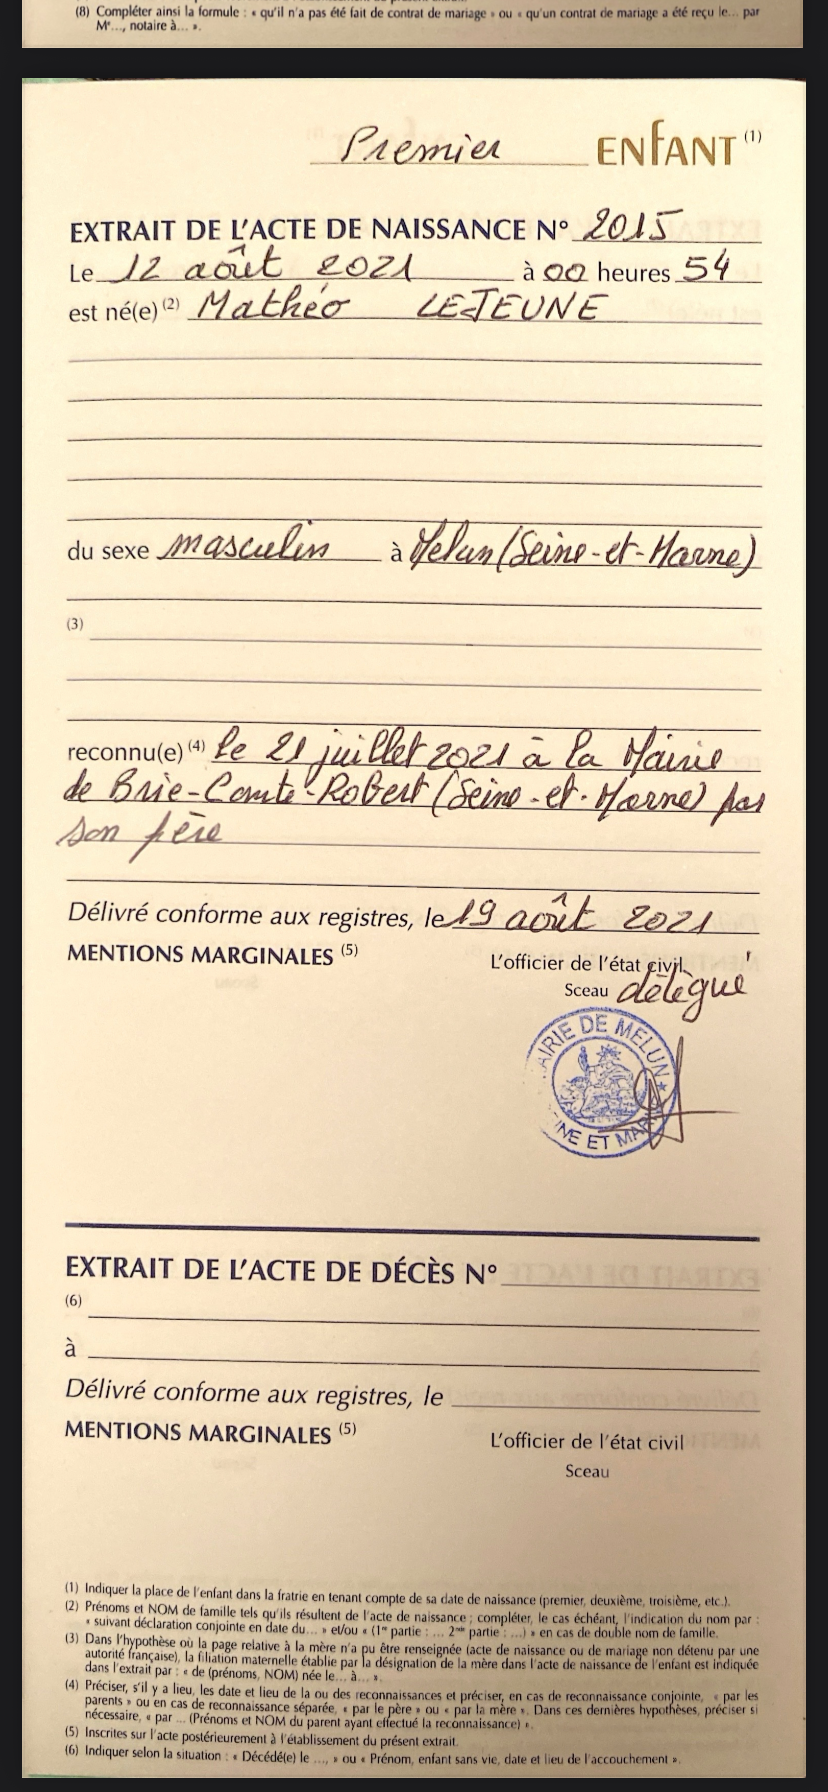 (8) Compléter ainsi la formule : « qu'il n'a pas été fait de contrat de mariage » ou « qu'un contrat de mariage a été reçu le... par
Mᵉ..., notaire à... ».
Premier ENFANT (1)
EXTRAIT DE L'ACTE DE NAISSANCE N° 2015
Le 12 août 2021 à 00 heures 54
est né(e) (2) Mathéo LEJEUNE
du sexe masculin à Melun (Seine-et-Marne)
(3)
reconnu(e) (4) le 21 juillet 2021 à la Mairie
de Brie-Comte-Robert (Seine-et-Marne) par
son père
Délivré conforme aux registres, le 19 août 2021
MENTIONS MARGINALES (5)
L'officier de l'état civil
Sceau délégué
MAIRIE DE MELUN ★
SEINE ET MARNE
EXTRAIT DE L'ACTE DE DÉCÈS N°
(6)
à
Délivré conforme aux registres, le
MENTIONS MARGINALES (5)
L'officier de l'état civil
Sceau
(1) Indiquer la place de l'enfant dans la fratrie en tenant compte de sa date de naissance (premier, deuxième, troisième, etc.).
(2) Prénoms et NOM de famille tels qu'ils résultent de l'acte de naissance ; compléter, le cas échéant, l'indication du nom par :
« suivant déclaration conjointe en date du... » et/ou « (1ʳᵉ partie : ... 2ᵐᵉ partie : ...) » en cas de double nom de famille.
(3) Dans l'hypothèse où la page relative à la mère n'a pu être renseignée (acte de naissance ou de mariage non détenu par une
autorité française), la filiation maternelle établie par la désignation de la mère dans l'acte de naissance de l'enfant est indiquée
dans l'extrait par : « de (prénoms, NOM) née le... à... ».
(4) Préciser, s'il y a lieu, les date et lieu de la ou des reconnaissances et préciser, en cas de reconnaissance conjointe, « par les
parents » ou en cas de reconnaissance séparée, « par le père » ou « par la mère ». Dans ces dernières hypothèses, préciser si
nécessaire, « par ... (Prénoms et NOM du parent ayant effectué la reconnaissance) ».
(5) Inscrites sur l'acte postérieurement à l'établissement du présent extrait.
(6) Indiquer selon la situation : « Décédé(e) le ..., » ou « Prénom, enfant sans vie, date et lieu de l'accouchement ».